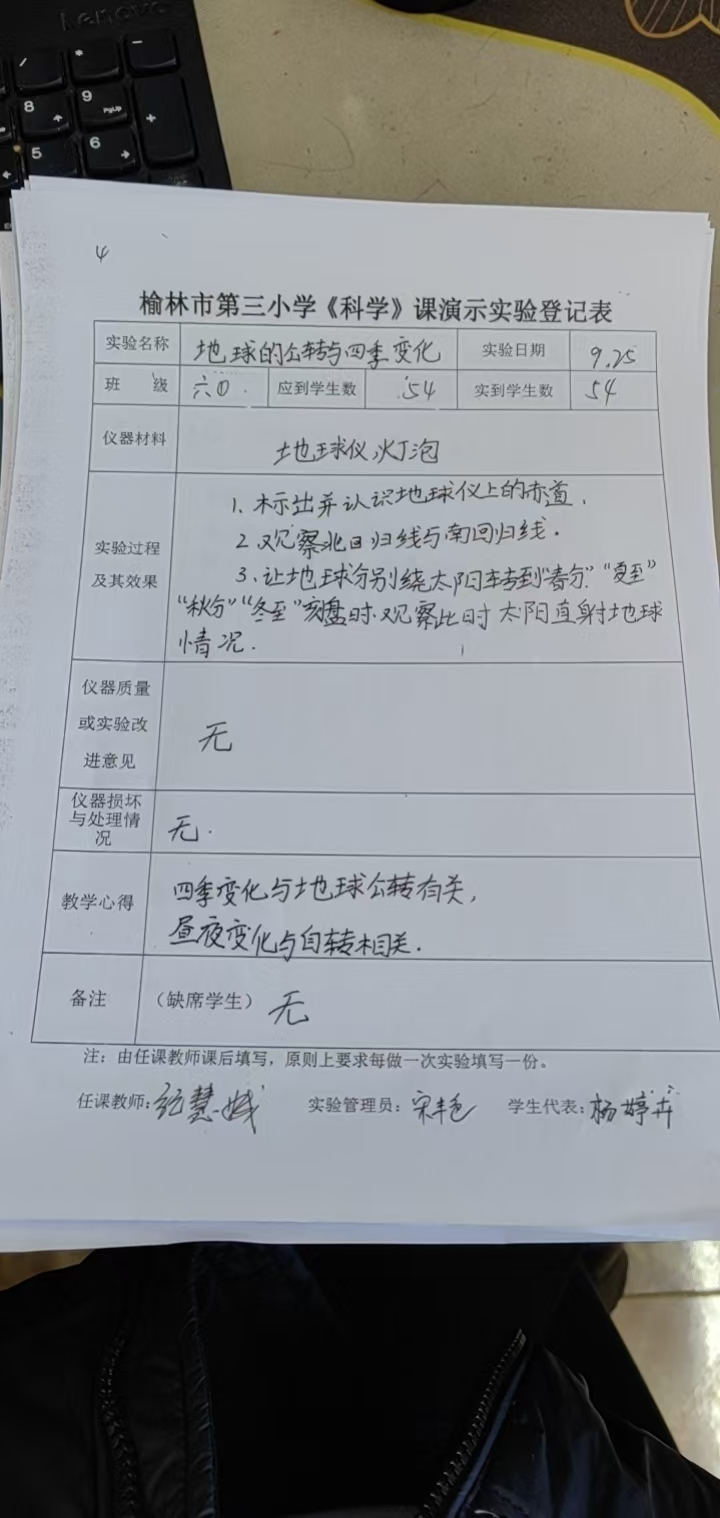 lenovo
/ * -
8 9 PgUp +
5 6
4
榆林市第三小学《科学》课演示实验登记表
实验名称 地球的公转与四季变化 实验日期 9.25
班 级 六① 应到学生数 54 实到学生数 54
仪器材料 地球仪,灯泡
1、标出并认识地球仪上的赤道.
2 观察北回归线与南回归线.
实验过程
及其效果
3、让地球分别绕太阳转到“春分”“夏至”
“秋分”“冬至”刻盘时.观察此时太阳直射地球
情况.
仪器质量
或实验改
进意见
无
仪器损坏
与处理情
况
无.
教学心得
四季变化与地球公转有关,
昼夜变化与自转相关.
备注 (缺席学生) 无
注:由任课教师课后填写,原则上要求每做一次实验填写一份。
任课教师: 慧 实验管理员:宋艳 学生代表:杨婷卉